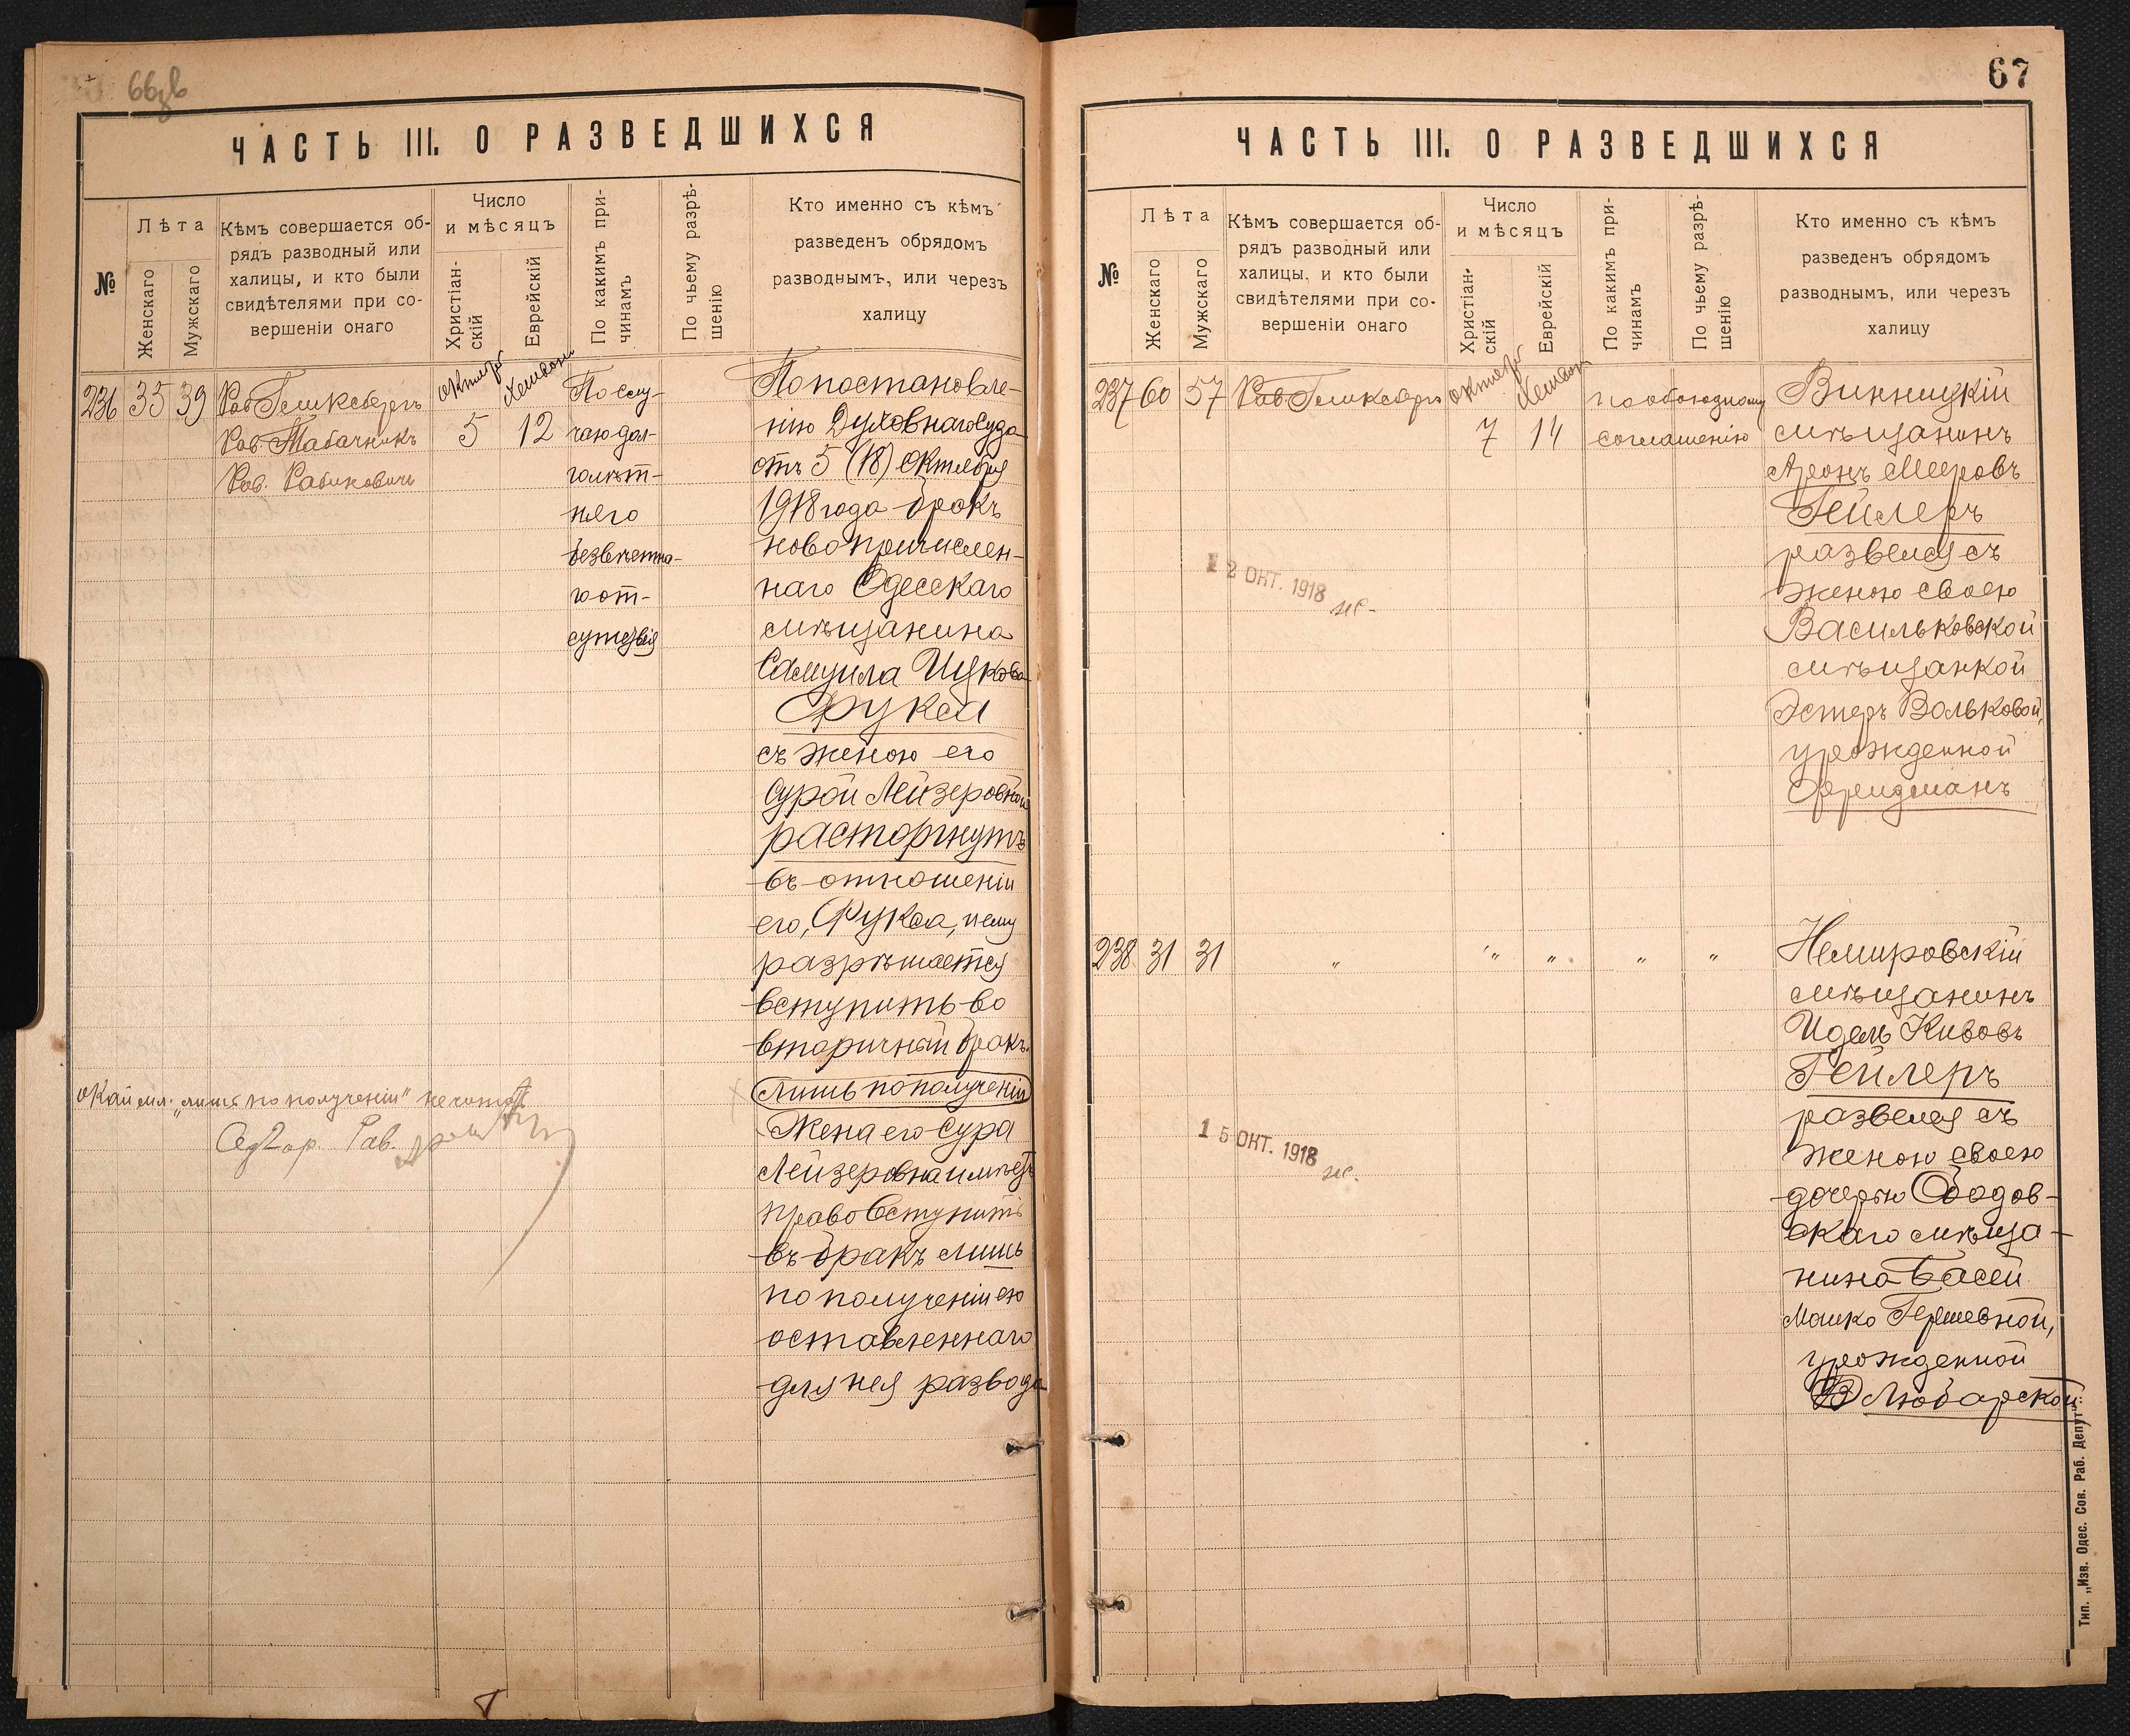 ЧАСТЬ III. О РАЗВЕДШИХСЯ
№
Лѣта
Женскаго
Мужскаго
Кѣмъ совершается об-
рядъ разводный или
халицы, и кто были
свидѣтелями при со-
вершеніи онаго
Число
и мѣсяцъ
Христіан-
скій
Еврейскій
По какимъ при-
чинамъ
По чьему разрѣ-
шенію
Кто именно съ кѣмъ
разведенъ обрядомъ
разводнымъ, или черезъ
халицу
236 35 39
Рав Гешксбергъ
Рав Табачникъ
Рав. Рабиковичъ
октября
Хешвон
5 12
По слу-
чаю дол-
голѣт-
няго
безвѣстна-
го от-
сутствія
По постановле-
нію Духовнаго Суда
отъ 5 (18) Октября
1918 года бракъ
новопричислен-
наго Одесскаго
мѣщанина
Самуила Ицкова
Фукса
съ женою его
Сурой Лейзеровной
расторгнутъ
въ отношеніи
его, Фукса, и ему
разрѣшается
вступить во
вторичный бракъ.
лишь по полученіи
Жена его Сура
Лейзеровна имѣетъ
право вступить
въ бракъ лишь
по полученіи ею
оставленнаго
для нея развода
Окаймл: „лишь по полученіи" не читать
Рав.
67
ЧАСТЬ III. О РАЗВЕДШИХСЯ
№
Лѣта
Женскаго
Мужскаго
Кѣмъ совершается об-
рядъ разводный или
халицы, и кто были
свидѣтелями при со-
вершеніи онаго
Число
и мѣсяцъ
Христіан-
скій
Еврейскій
По какимъ при-
чинамъ
По чьему разрѣ-
шенію
Кто именно съ кѣмъ
разведенъ обрядомъ
разводнымъ, или черезъ
халицу
237 60 57
Рав Гешксбергъ
октября
Хешвон
7 14
по обоюдному
соглашенію
Винницкій
мѣщанинъ
Аронъ Мееровъ
Гейлеръ
развелся съ
женою своею
Васильковской
мѣщанкой
Эстеръ Вольковой,
урожденной
Фрейдманъ
12 ОКТ. 1918
238 31 31 " " " " "
Немировскій
мѣщанинъ
Идель Кивовъ
Гейлеръ
развелся съ
женою своею
дочерью Ободов-
скаго мѣща-
нина Басей
Манко Гершевной,
урожденной
Любарской
15 ОКТ. 1918
Тип. „Изв. Одес. Сов. Раб. Депут".